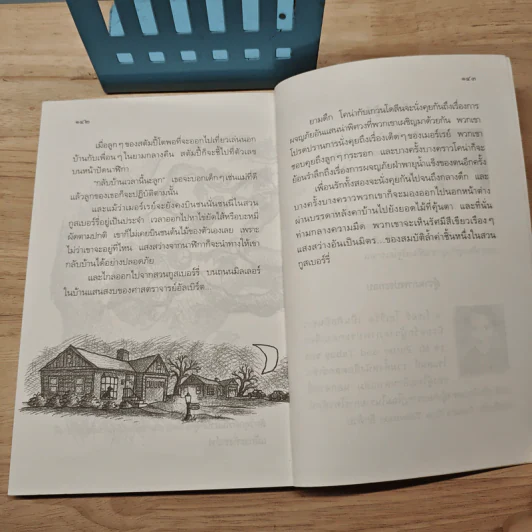 ๑๔๒
เมื่อลูกๆ ของสตัมปี้โตพอที่จะออกไปเที่ยวเล่นนอก
บ้านกับเพื่อนๆ ในยามกลางคืน สตัมปี้ก็จะชี้ไปที่ตัวเลข
บนหน้าปัดนาฬิกา
"กลับบ้านเวลานี้นะลูก" เธอจะบอกเด็กๆ เช่นแม่ที่ดี
แล้วลูกของเธอก็จะปฏิบัติตามนั้น
และแม้ว่าเมอร์เรย์จะยังคงบินชนนั่นชนนี่ในสวน
กูสเบอร์รี่อยู่เป็นประจำ เวลาออกไปหาไข่ผัดไต้หรือบะหมี่
ผัดตามปกติ เขาก็ไม่เคยบินชนต้นไม้ของตัวเองเลย เพราะ
ไม่ว่าเขาจะอยู่ที่ไหน แสงสว่างจากนาฬิกาก็จะนำทางให้เขา
กลับบ้านได้อย่างปลอดภัย
และไกลออกไปจากสวนกูสเบอร์รี่ บนถนนมิลเลอร์
ในบ้านแสนสงบของศาสตราจารย์อัลเบิร์ต
๑๔๓
ยามดึก โคน่ากับเกวนโดลีนจะนั่งคุยกันถึงเรื่องการ
ผจญภัยอันแสนน่าพิศวงที่พวกเขาเผชิญมาด้วยกัน พวกเขา
โปรดปรานการนั่งคุยถึงเรื่องเด็ดๆ ของเมอร์เรย์ พวกเขา
ชอบคุยถึงลูกๆ กระรอก และบางครั้งบางคราวโคน่าก็จะ
ย้อนรำลึกถึงเรื่องการผจญภัยฝ่าพายุน้ำแข็งของตนอีกครั้ง
เพื่อนรักทั้งสองจะนั่งคุยกันไปจนถึงกลางดึก และ
บางครั้งบางคราวพวกเขาก็จะมองออกไปนอกหน้าต่าง
ผ่านบรรดาหลังคาบ้านไปยังยอดไม้ที่คุ้นตา และที่นั่น
ท่ามกลางความมืด พวกเขาจะเห็นรัศมีสีเขียวเรืองๆ
แสงสว่างอันเป็นมิตร...ของสมบัติล้ำค่าชิ้นหนึ่งในสวน
กูสเบอร์รี่